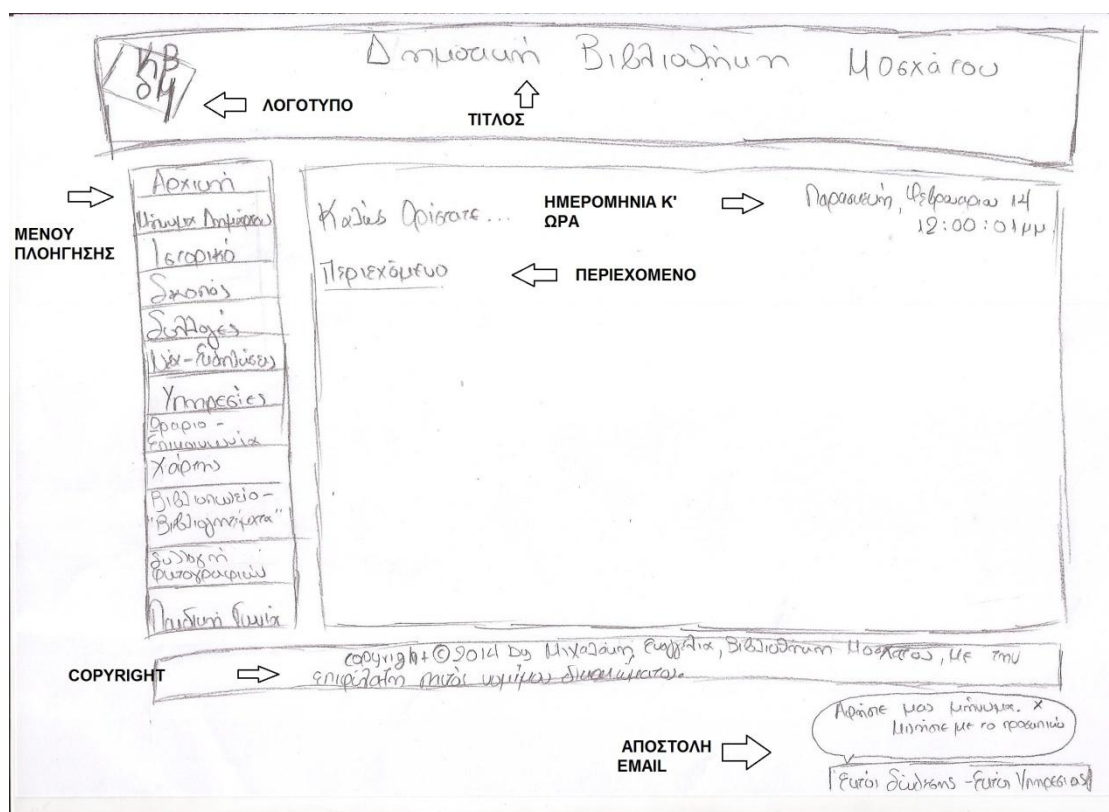 Δημοτική Βιβλιοθήκη Μοσχάτου
ΛΟΓΟΤΥΠΟ
ΤΙΤΛΟΣ
ΜΕΝΟΥ
ΠΛΟΗΓΗΣΗΣ
Αρχική
Μήνυμα Δημάρχου
Ιστορικό
Σκοπός
Συλλογές
Νέα-Εκδηλώσεις
Υπηρεσίες
Ωράριο -
Επικοινωνία
Χάρτης
Βιβλιοπωλείο -
"Βιβλιογητέματα"
Συλλογή
φωτογραφιών
Παιδική Γωνιά
Καλώς Ορίσατε...
ΗΜΕΡΟΜΗΝΙΑ Κ'
ΩΡΑ
Παρασκευή, Φεβρουαρίου 14
12:00:01μμ
Περιεχόμενο
ΠΕΡΙΕΧΟΜΕΝΟ
COPYRIGHT
copyright © 2014 by Μιχαλάκη Ευαγγελία, Βιβλιοθήκη Μοσχάτου, με την
επιφύλαξη παντός νομίμου δικαιώματος.
ΑΠΟΣΤΟΛΗ
EMAIL
Αφήστε μας μήνυμα. x
Μιλήστε με το προσωπικό
Εκτός σύνδεσης - Εκτός Υπηρεσίας